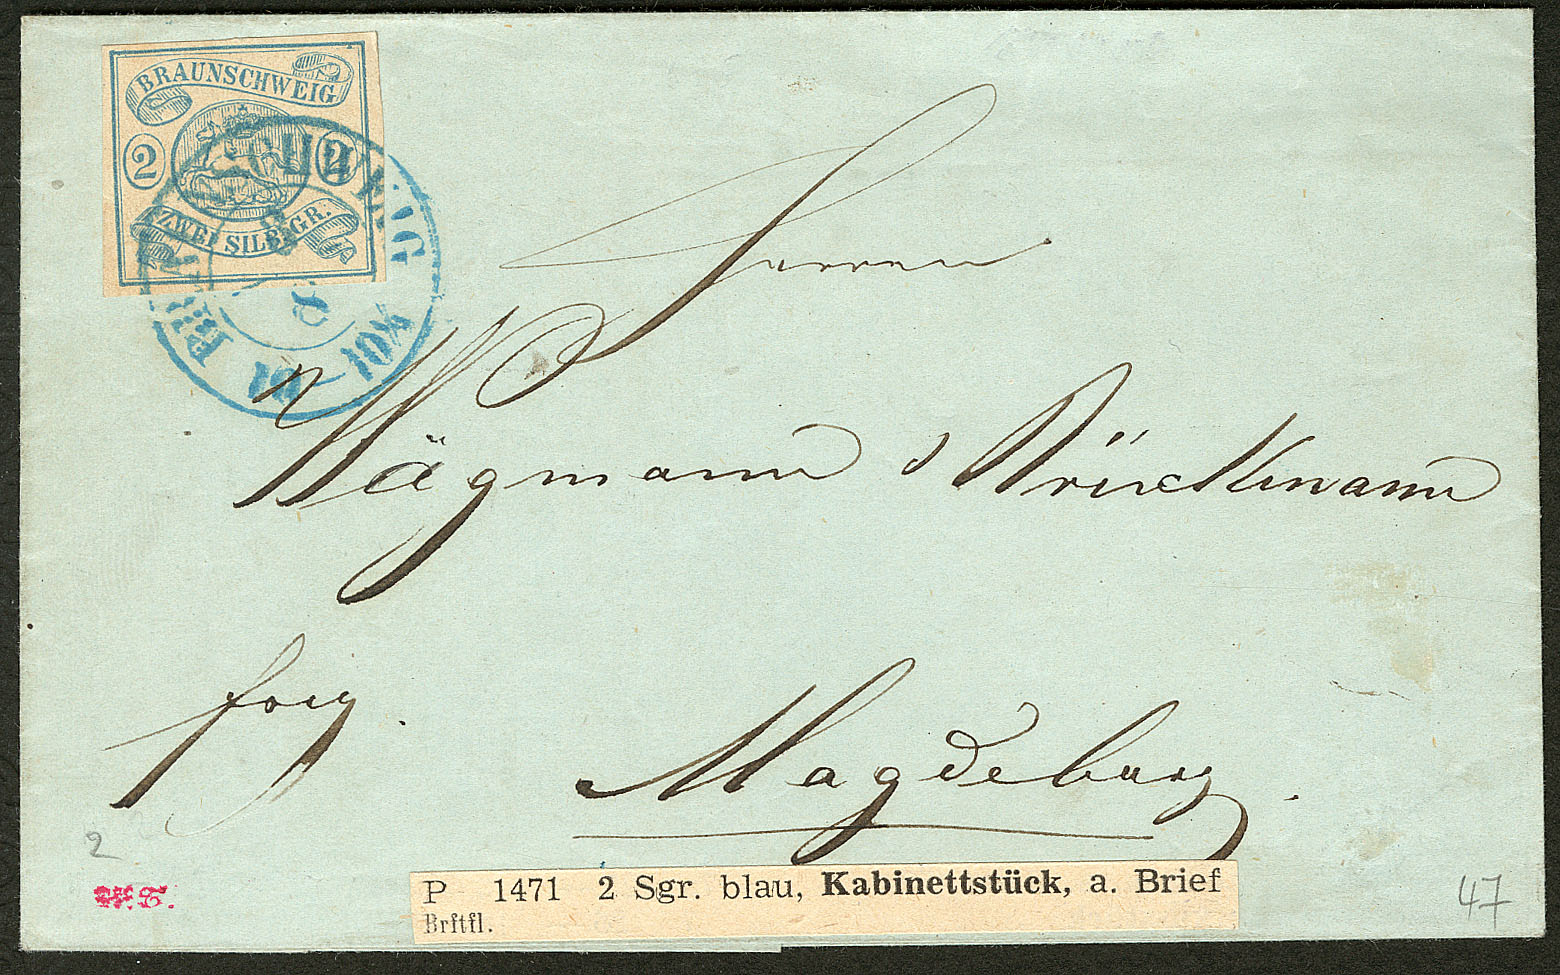 BRAUNSCHWEIG
2 2
ZWEI SILB.GR.
BRAUNSCHWEIG
8
10¼-12
Herren
Wägmann & Brückmann
frey.
Magdeburg.
2
P 1471 2 Sgr. blau, Kabinettstück, a. Brief
Brftfl.
47